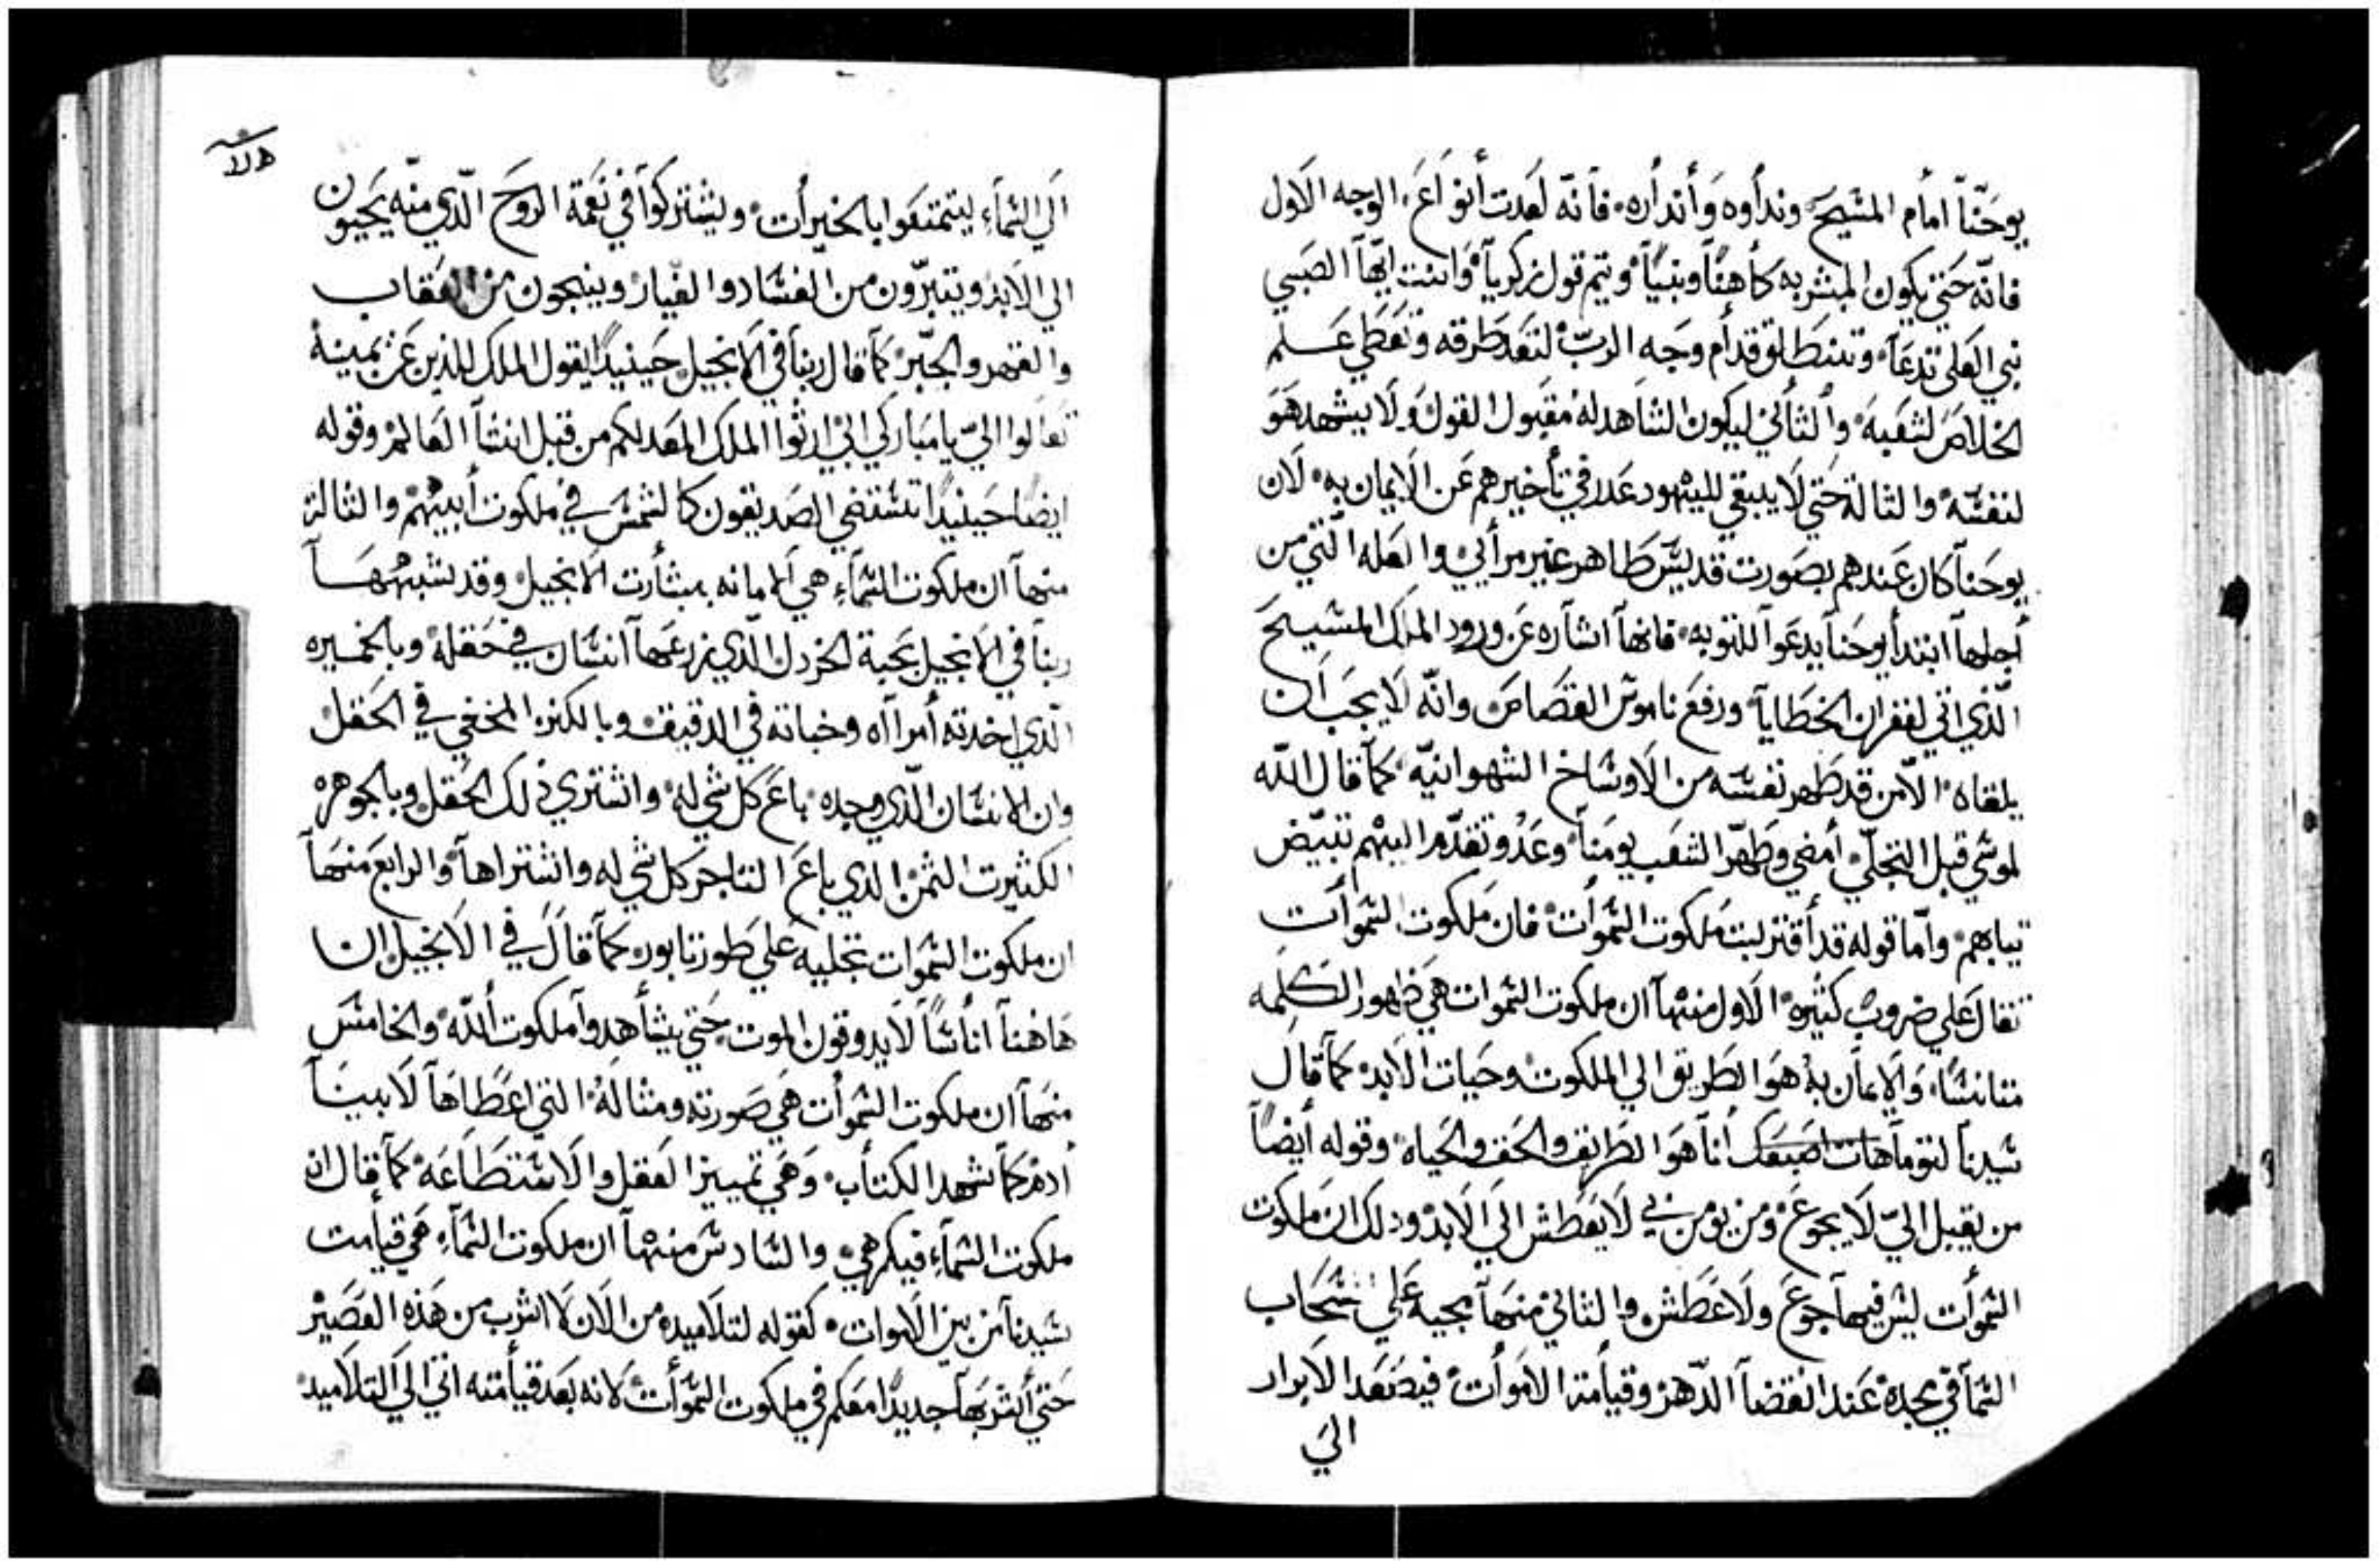 يوحَنّاً امأم المسَيحَ وندأوه وَأندأره فآنّه لعَدت أنوآعَ الوجه الاَول
فانّه حَتيَ يكون المبشر به كأهناً ونبياً ويتم قول زكريآ وَانت ايّهآ الصَبي
نبي العَلي تدعَآ وتنطَلق قدأم وجَه الربّ لتعَد طَرقه وتعَطي عَلم
الخلاصَ لشعَبه والتأني ليكون الشاهد له مقبول القول وَلا يشهد هَوَ
لنفسَه والتالة حَتي لاَ يبقي لليهود عَدر في تأخيرهم عَن الايمان به لاَن
يوحَنآ كان عَندهم بصَورت قديسَ طَاهر غير مرأيي والعَله التي من
أجلهآ ابتدأ يوحَنآ يدعَوآ للتوبه فانهآ اشآره عَن ورود الملَك المسَيحَ
الّذي اتي لغفران الخطَايآ ورفعَ ناموسَ القصَاصَ وانّه لاَ يجَب اَن
يلقاه الاّ من قد طَهر نفسَه من الاَوسَاخ الشهوانيّه كمآ قال اللّه
لموسَي قبل التجلّي أمضي وطَهّر الشعَب يومَنآ وعَدُو تقدّم اليهم تبيّض
تيابهم وامّا قوله قد أقتربت مَلكوت السَموأت فان مَلكوت السَموأت
تقال عَلي ضروب كتيره الاَول منهآ ان ملكوت السَموات هَي ظهور الكَلمه
متانسًا وَالايمآن به هَوَ الطَريق الي الملكوت وحَيات الاَبد كمآ قاَل
سَيدنآ لتومآ هَات اصَبعَك أنآ هَوَ الطَرايق والحَق والحَياه وقوله أيضاً
من يقبل اليّ لاَ يجوعَ وَمن يومن بي لاَ يعَطَش الَي الاَبد ودلك ان مَلكوت
السَموأت ليسَ فيهآ جوعَ ولَا عَطَش والتاني منهَآ مجيه عَلي سَحَاب
السَمآ في مجده عَند انقضآ الدّهر وقيأمة الاَموأت فيصَعَد الاَبرار
اليَ
الَي السَمآءِ ليتمتعَوا بالخيرأت ويشتركوآ في نعَمة الروحَ الّدي منّه يحَيون
الي الاَبد ويتبرّون من الفسَاد والغيار وينجون من العَقاب
والقهر والجَبّر كمآ قال ربنآ في الاَنجيل حَينيداً يقول الملك للدين عَن يمينه
تعَالوا اليّ يا مبَاركي ابي ارتوا الملك المعَد لكم من قبل انشآ العَالم وقوله
ايضًا حَينيداً تسَتضي الصَديقون كالشمسَ في مَلكوت أبيهم والتالت
منهآ ان ملكوت السَمآءِ هي الاَمانه ببشأرت الاَنجيل وقد شبههَآ
ربنآ في الاَنجيل بحَبة الخردل الّدي زرعَهآ انسَان في حَقله وبالخميره
الّدي اخدته أمرأه وخباته في الدقيق وبالكنز المخفي في الحَقل
وان الانسَان الّدي وجده باعَ كل شي له واشتري دلك الحَقل وبالجوهره
الكتيرت التمن الدي باعَ التاجر كل شي له واشتراهآ والرابعَ منهَآ
ان ملكوت السَموات تجليه عَلي طَور تابور كمآ قالَ في الاَنجيل ان
هَاهنآ انأسَاً لاَ يدوقون الموت حَتي يشأهدوآ ملكوت أللّه والخامسَ
منهَآ ان ملكوت السَموأت هَي صَورته ومتالهُ التي اعَطَاهَآ لاَبينَآ
أدم كمآ شهد الكتأب وَهَي تمييز العَقل والاَسَتطَاعَه كمآ قال ان
ملكوت السَمآءِ فيكم هي والسَادسَ منهآ ان ملكوت السَمآءِ هَي قيأمت
سَيدنآ من بين الاَموات كقوله لتلاَميده من الاَن لاَ اشرب من هَذه العَصَير
حَتي أشربهَآ جديداً معَكم في ملكوت السَموأت لاَنه بعَد قيأمته اتي الَي التلاَميد